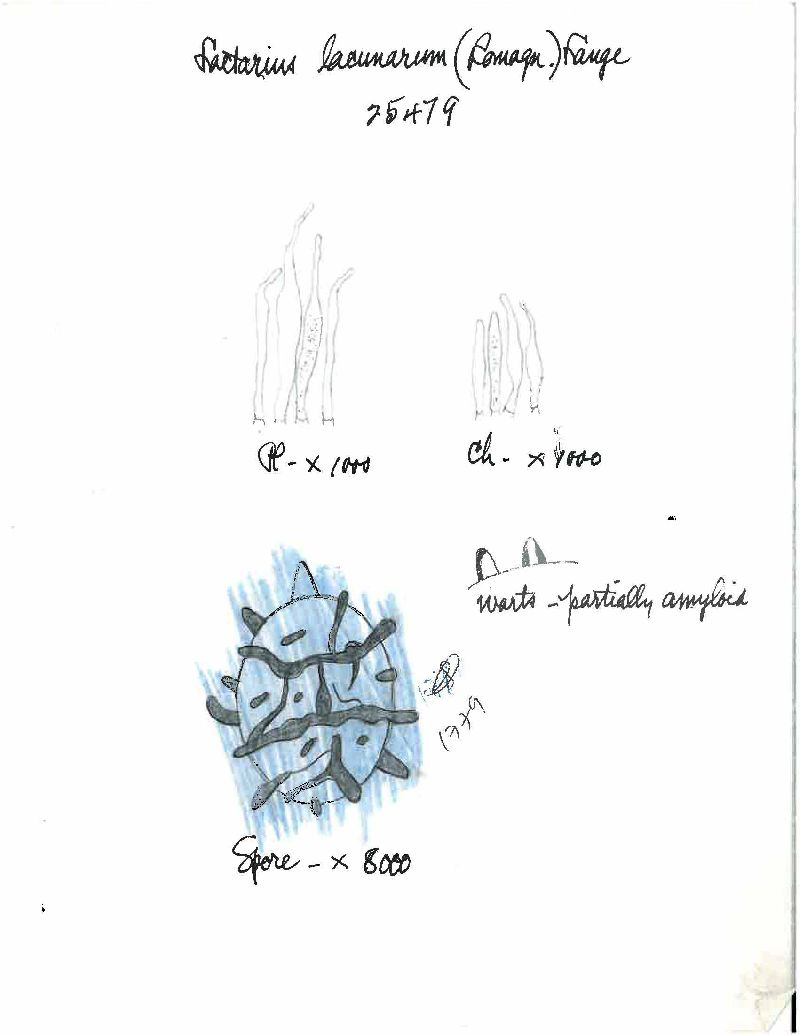 Lactarius lacunarum (Romagn.) Lange
25479
Pl - x 1000
Ch - x 1000
warts - partially amyloid
1379
Spore - x 8000